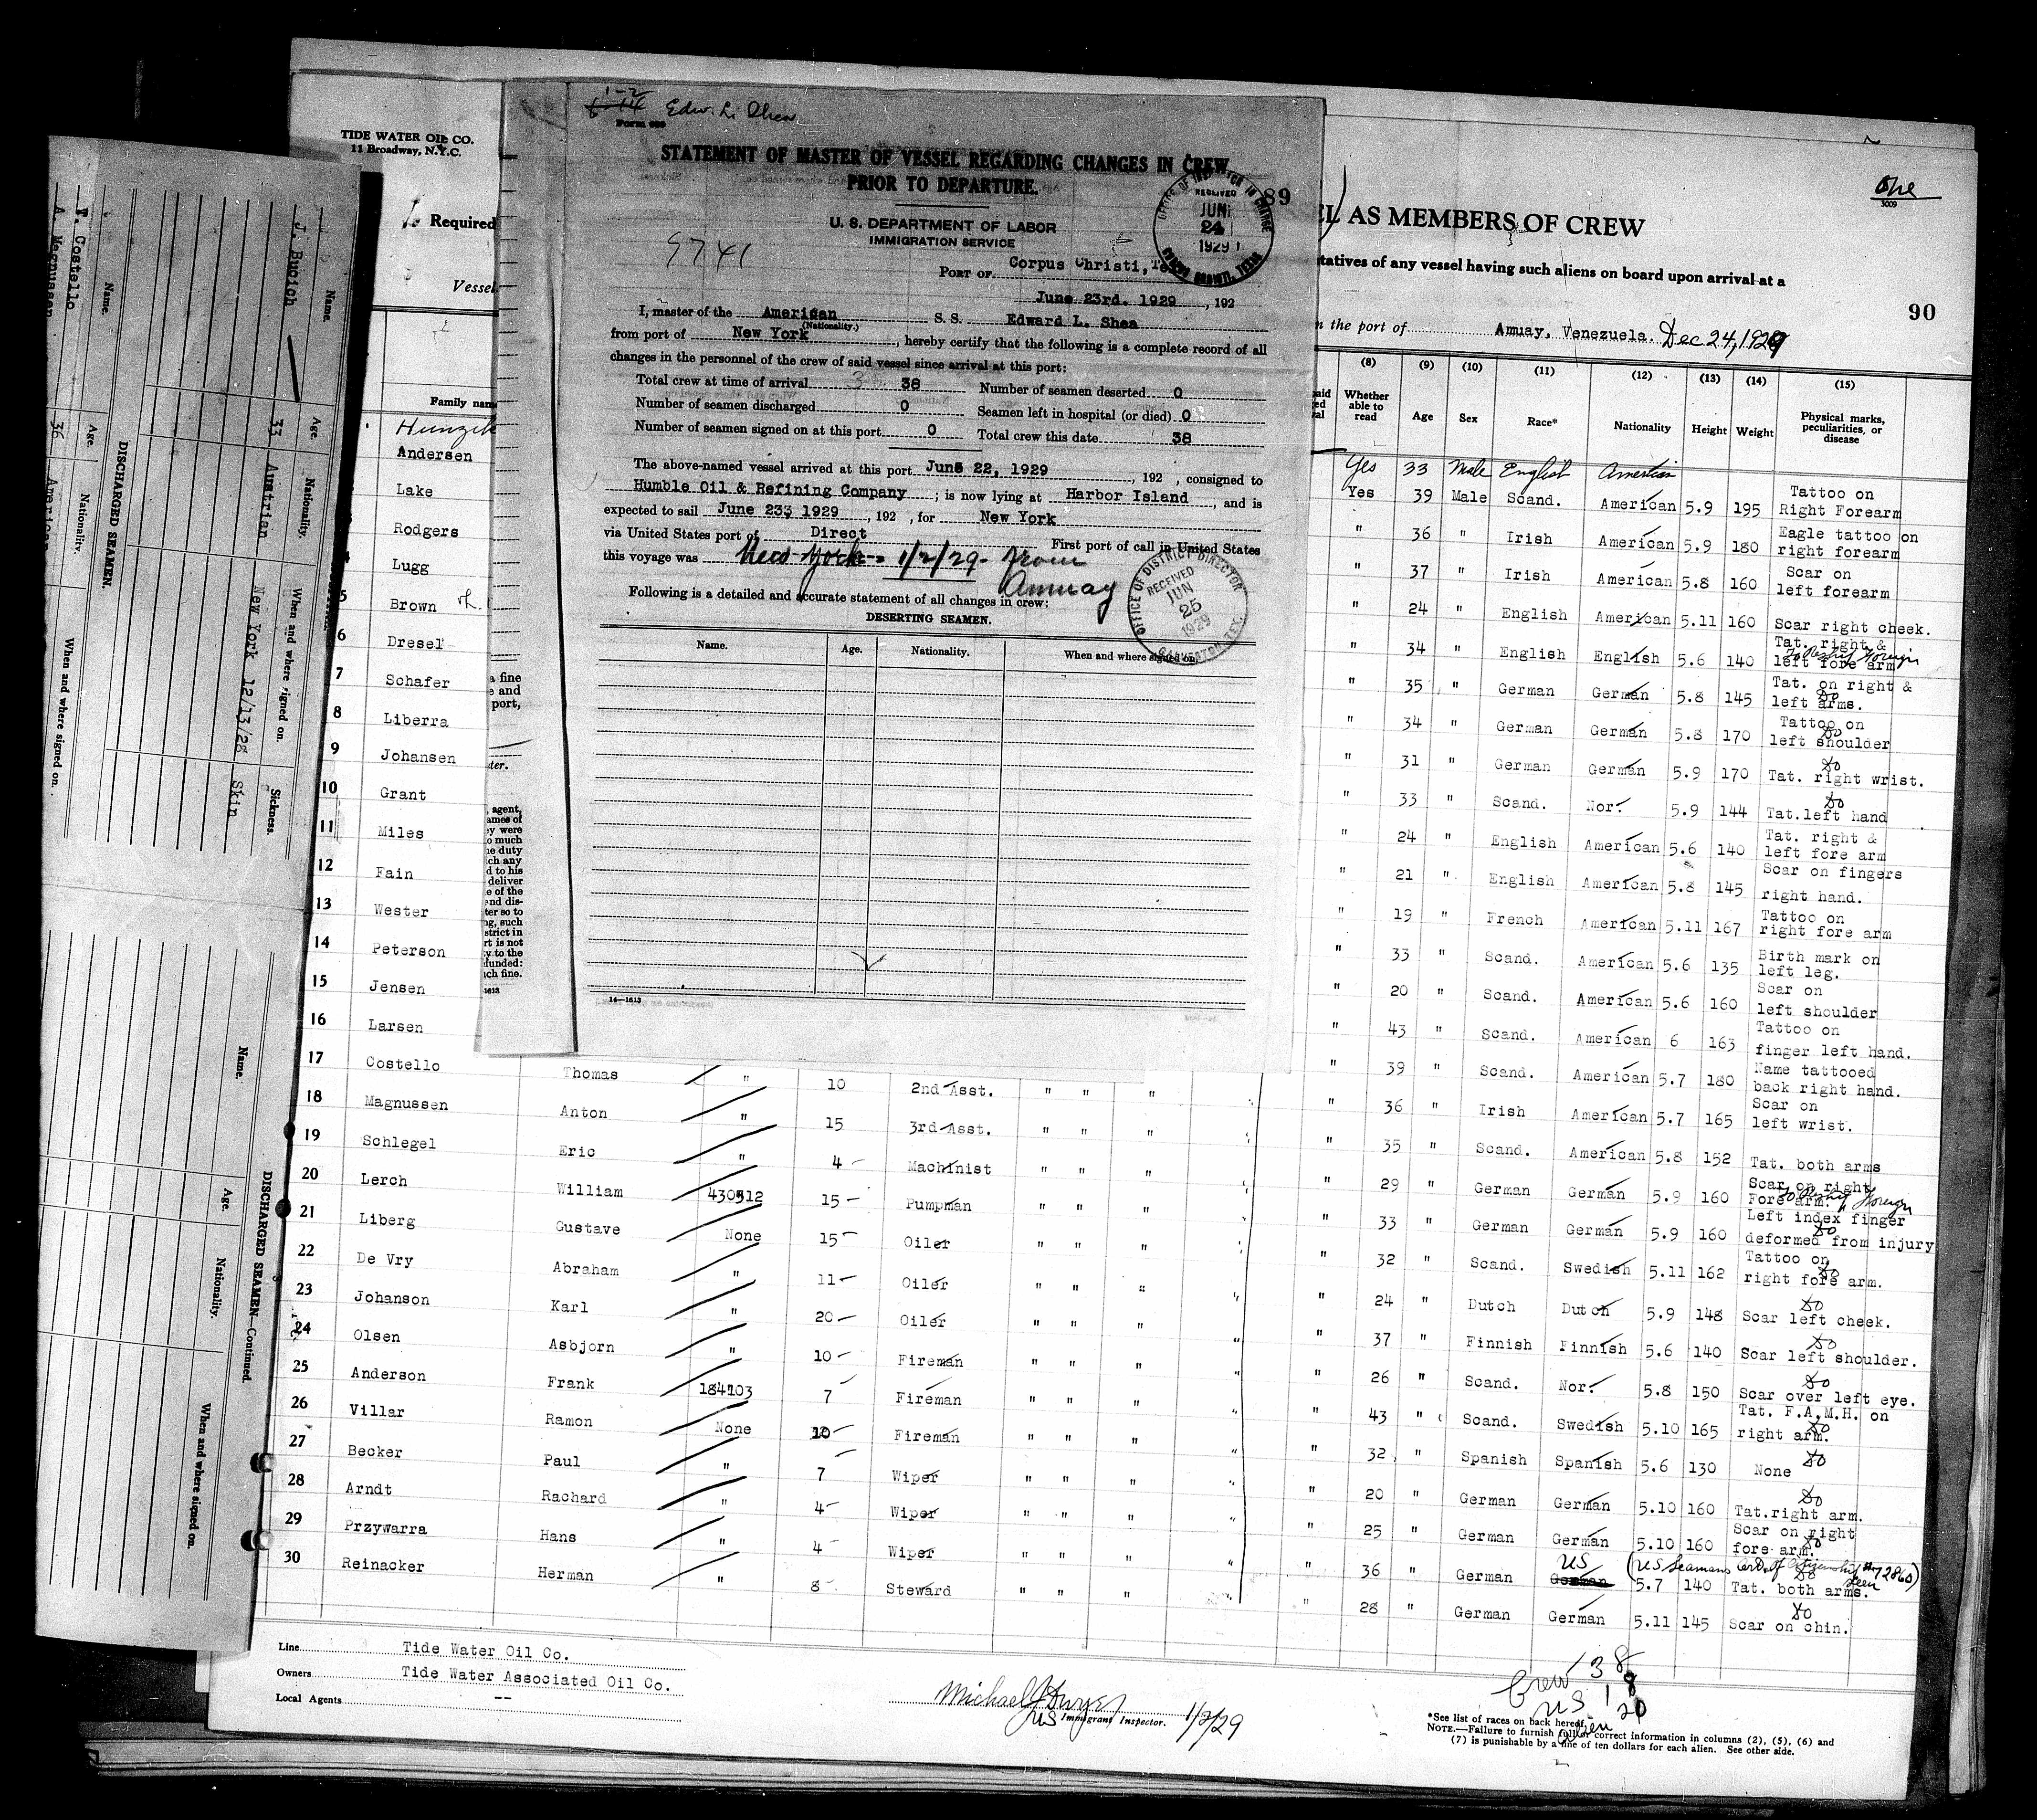 TIDE WATER OIL CO.
11 Broadway, N.Y.C.
Required
Vessel
Family name
Hunzik
Andersen
Lake
Rodgers
4 Lugg
5 Brown
6 Dresel
7 Schafer
8 Liberra
9 Johansen
10 Grant
11 Miles
12 Fain
13 Wester
14 Peterson
15 Jensen
16 Larsen
1-2
Edw. L. Shea
STATEMENT OF MASTER OF VESSEL REGARDING CHANGES IN CREW
PRIOR TO DEPARTURE.
89
U. S. DEPARTMENT OF LABOR
IMMIGRATION SERVICE
9741
RECEIVED
JUN
24
1929
PORT OF Corpus Christi, Tex
June 23rd. 1929, 192
I, master of the American S. S. Edward L. Shea
(Nationality.)
from port of New York, hereby certify that the following is a complete record of all
changes in the personnel of the crew of said vessel since arrival at this port:
Total crew at time of arrival 38 Number of seamen deserted 0
Number of seamen discharged 0 Seamen left in hospital (or died) 0
Number of seamen signed on at this port 0 Total crew this date 38
The above-named vessel arrived at this port June 22, 1929, 192 , consigned to
Humble Oil & Refining Company; is now lying at Harbor Island, and is
expected to sail June 23, 1929, 192 , for New York
via United States port of Direct First port of call in United States
this voyage was New York - 1/2/29 - from
Amuay
Following is a detailed and accurate statement of all changes in crew:
OFFICE OF DISTRICT DIRECTOR
RECEIVED
JUN
25
1929
GALVESTON, TEX.
DESERTING SEAMEN.
Name. Age. Nationality. When and where signed on.
14-1613
a fine
e and
port,
ter.
agent,
ames of
ey were
o much
he duty
ch any
d to his
deliver
e of the
and dis-
ter so to
ng, such
strict in
rt is not
y to the
funded:
uch fine.
1613
One
3009
AS MEMBERS OF CREW
tatives of any vessel having such aliens on board upon arrival at a
90
the port of Amuay, Venezuela. Dec 24, 1929
(8) (9) (10) (11) (12) (13) (14) (15)
Whether able to read Age Sex Race* Nationality Height Weight Physical marks, peculiarities, or disease
Yes 33 Male English American
Yes 39 Male Scand. American 5.9 195 Tattoo on Right Forearm
" 36 " Irish American 5.9 180 Eagle tattoo on right forearm
" 37 " Irish American 5.8 160 Scar on left forearm
" 24 " English American 5.11 160 Scar right cheek.
" 34 " English English 5.6 140 Tat. right & left fore arm
" 35 " German German 5.8 145 Tat. on right & left arms.
" 34 " German German 5.8 170 Tattoo on left shoulder
" 31 " German German 5.9 170 Tat. right wrist.
" 33 " Scand. Nor. 5.9 144 Tat.left hand
" 24 " English American 5.6 140 Tat. right & left fore arm
" 21 " English American 5.8 145 Scar on fingers right hand.
" 19 " French American 5.11 167 Tattoo on right fore arm
" 33 " Scand. American 5.6 135 Birth mark on left leg.
" 20 " Scand. American 5.6 160 Scar on left shoulder
" 43 " Scand. American 6 163 Tattoo on finger left hand.
" 39 " Scand. American 5.7 180 Name tattooed back right hand.
17 Costello Thomas " 10 2nd Asst. " " " " 36 " Irish American 5.7 165 Scar on left wrist.
18 Magnussen Anton " 15 3rd Asst. " " " " 35 " Scand. American 5.8 152 Tat. both arms
19 Schlegel Eric " 4 Machinist " " " " 29 " German German 5.9 160 Scar on right Fore arm.
20 Lerch William 430512 15 Pumpman " " " " 33 " German German 5.9 160 Left index finger deformed from injury
21 Liberg Gustave None 15 Oiler " " " " 32 " Scand. Swedish 5.11 162 Tattoo on right fore arm.
22 De Vry Abraham " 11 Oiler " " " " 24 " Dutch Dutch 5.9 148 Scar left cheek.
23 Johanson Karl " 20 Oiler " " " " 37 " Finnish Finnish 5.6 140 Scar left shoulder.
24 Olsen Asbjorn " 10 Fireman " " " " 26 " Scand. Nor. 5.8 150 Scar over left eye.
25 Anderson Frank 184703 7 Fireman " " " " 43 " Scand. Swedish 5.10 165 Tat. F.A.M.H. on right arm.
26 Villar Ramon None 10 Fireman " " " " 32 " Spanish Spanish 5.6 130 None
27 Becker Paul " 7 Wiper " " " " 20 " German German 5.10 160 Tat.right arm.
28 Arndt Rachard " 4 Wiper " " " " 25 " German German 5.10 160 Scar on right fore arm.
29 Przywarra Hans " 4 Wiper " " " " 36 " German German US 5.7 140 Tat. both arms. (US Seamans Card of Citizenship # 72860) seen
30 Reinacker Herman " 8 Steward " " " " 28 " German German 5.11 145 Scar on chin.
Line Tide Water Oil Co.
Owners Tide Water Associated Oil Co.
Local Agents --
Michael J Dwyer
US Immigrant Inspector. 1/2/29
Crew 38
US 18
Alien 20
*See list of races on back hereof.
NOTE.—Failure to furnish full or correct information in columns (2), (5), (6) and
(7) is punishable by a fine of ten dollars for each alien. See other side.
Name. Age. Nationality. When and where signed on. Sickness.
J. Bucich 33 Austrian New York 12/13/28 Skin
DISCHARGED SEAMEN.
Name. Age. Nationality. When and where signed on.
T. Costello 36 American
A. Magnussen
DISCHARGED SEAMEN—Continued.
Name. Age. Nationality. When and where signed on.